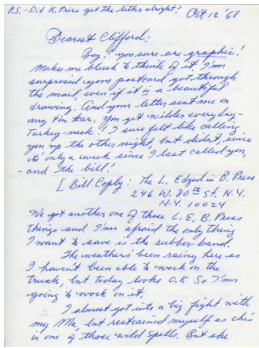 P.S. - Did K. Price get the liths alright?
Oct 12 '68
Dearest Clifford:
Boy! you sure are graphic!
Makes me blush to think of it. I'm
surprised your postcard got through
the mail even if it is a beautiful
drawing. And your letter sent me on
my ear. You get wilder every day -
Turkey-neck! I sure felt like calling
you up the other night, but didn't, since
its only a week since I last called you,
- and the bill!
[Bill Copley: The L. Edged in B. Press
246 W. 80th St. N.Y.
N.Y. 10024
We got another one of those L.E.B. Press
things and I'm afraid the only thing
I want to save is the rubber band.
The weathers been racing here so
I haven't been able to work on the
truck, but today looks O.K. So I'm
going to work on it.
I almost got into a big fight with
my Ma, but restrained myself as she's
in one of those wild spells. But she